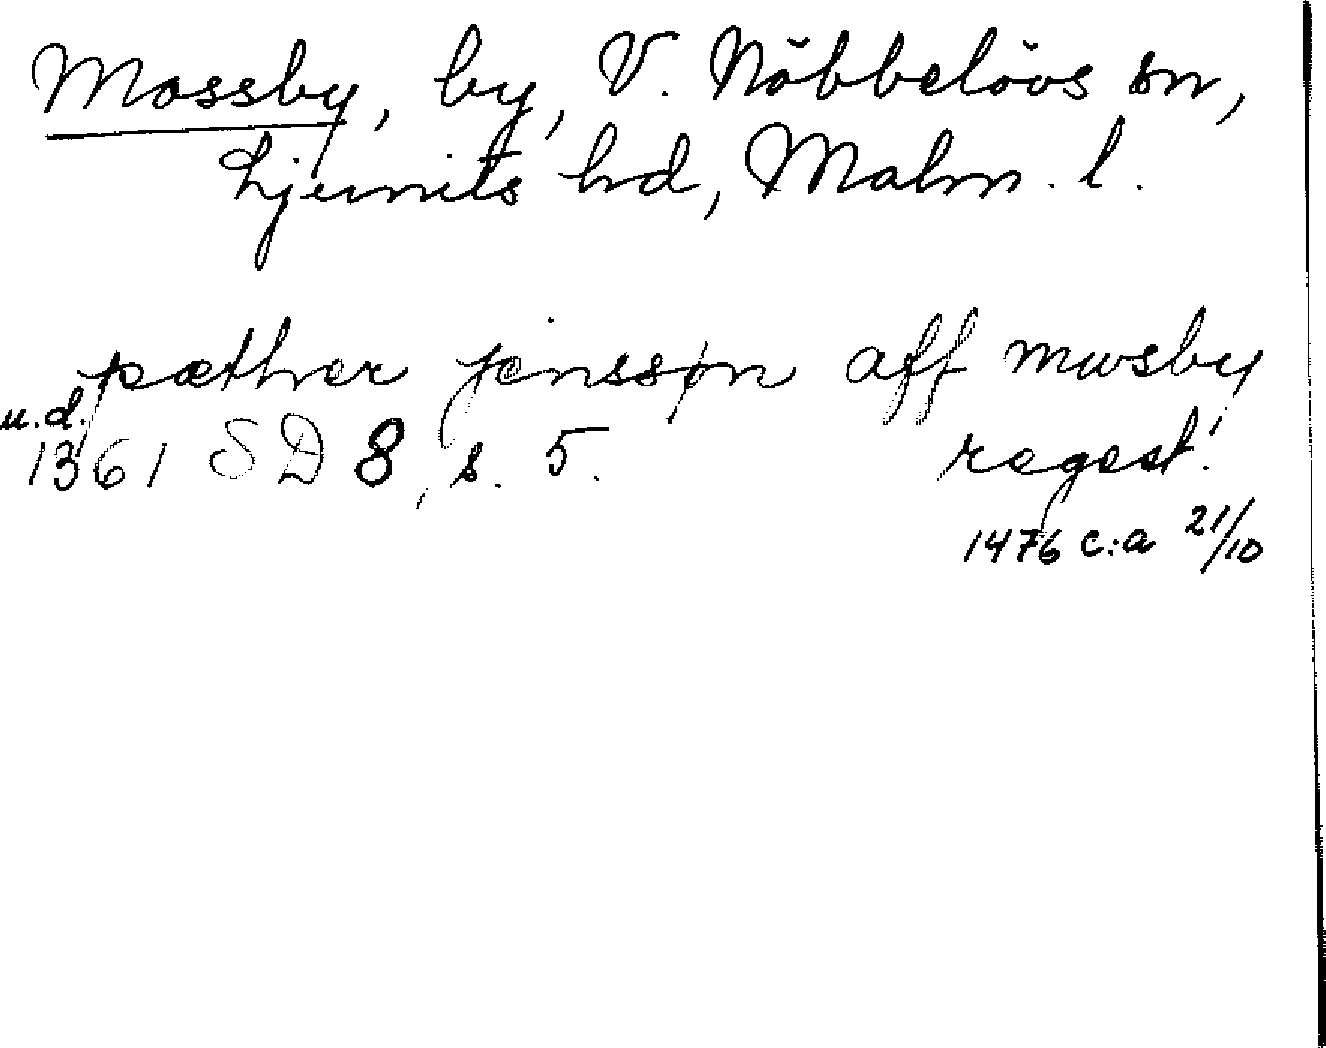 Mossby, by, V. Nöbbelövs sn,
Ljunits hd, Malm. l.
pæther jenssøn aff mwsby
u.d.
1361 SD 8, s. 5. regest!
1476 c:a 21/10